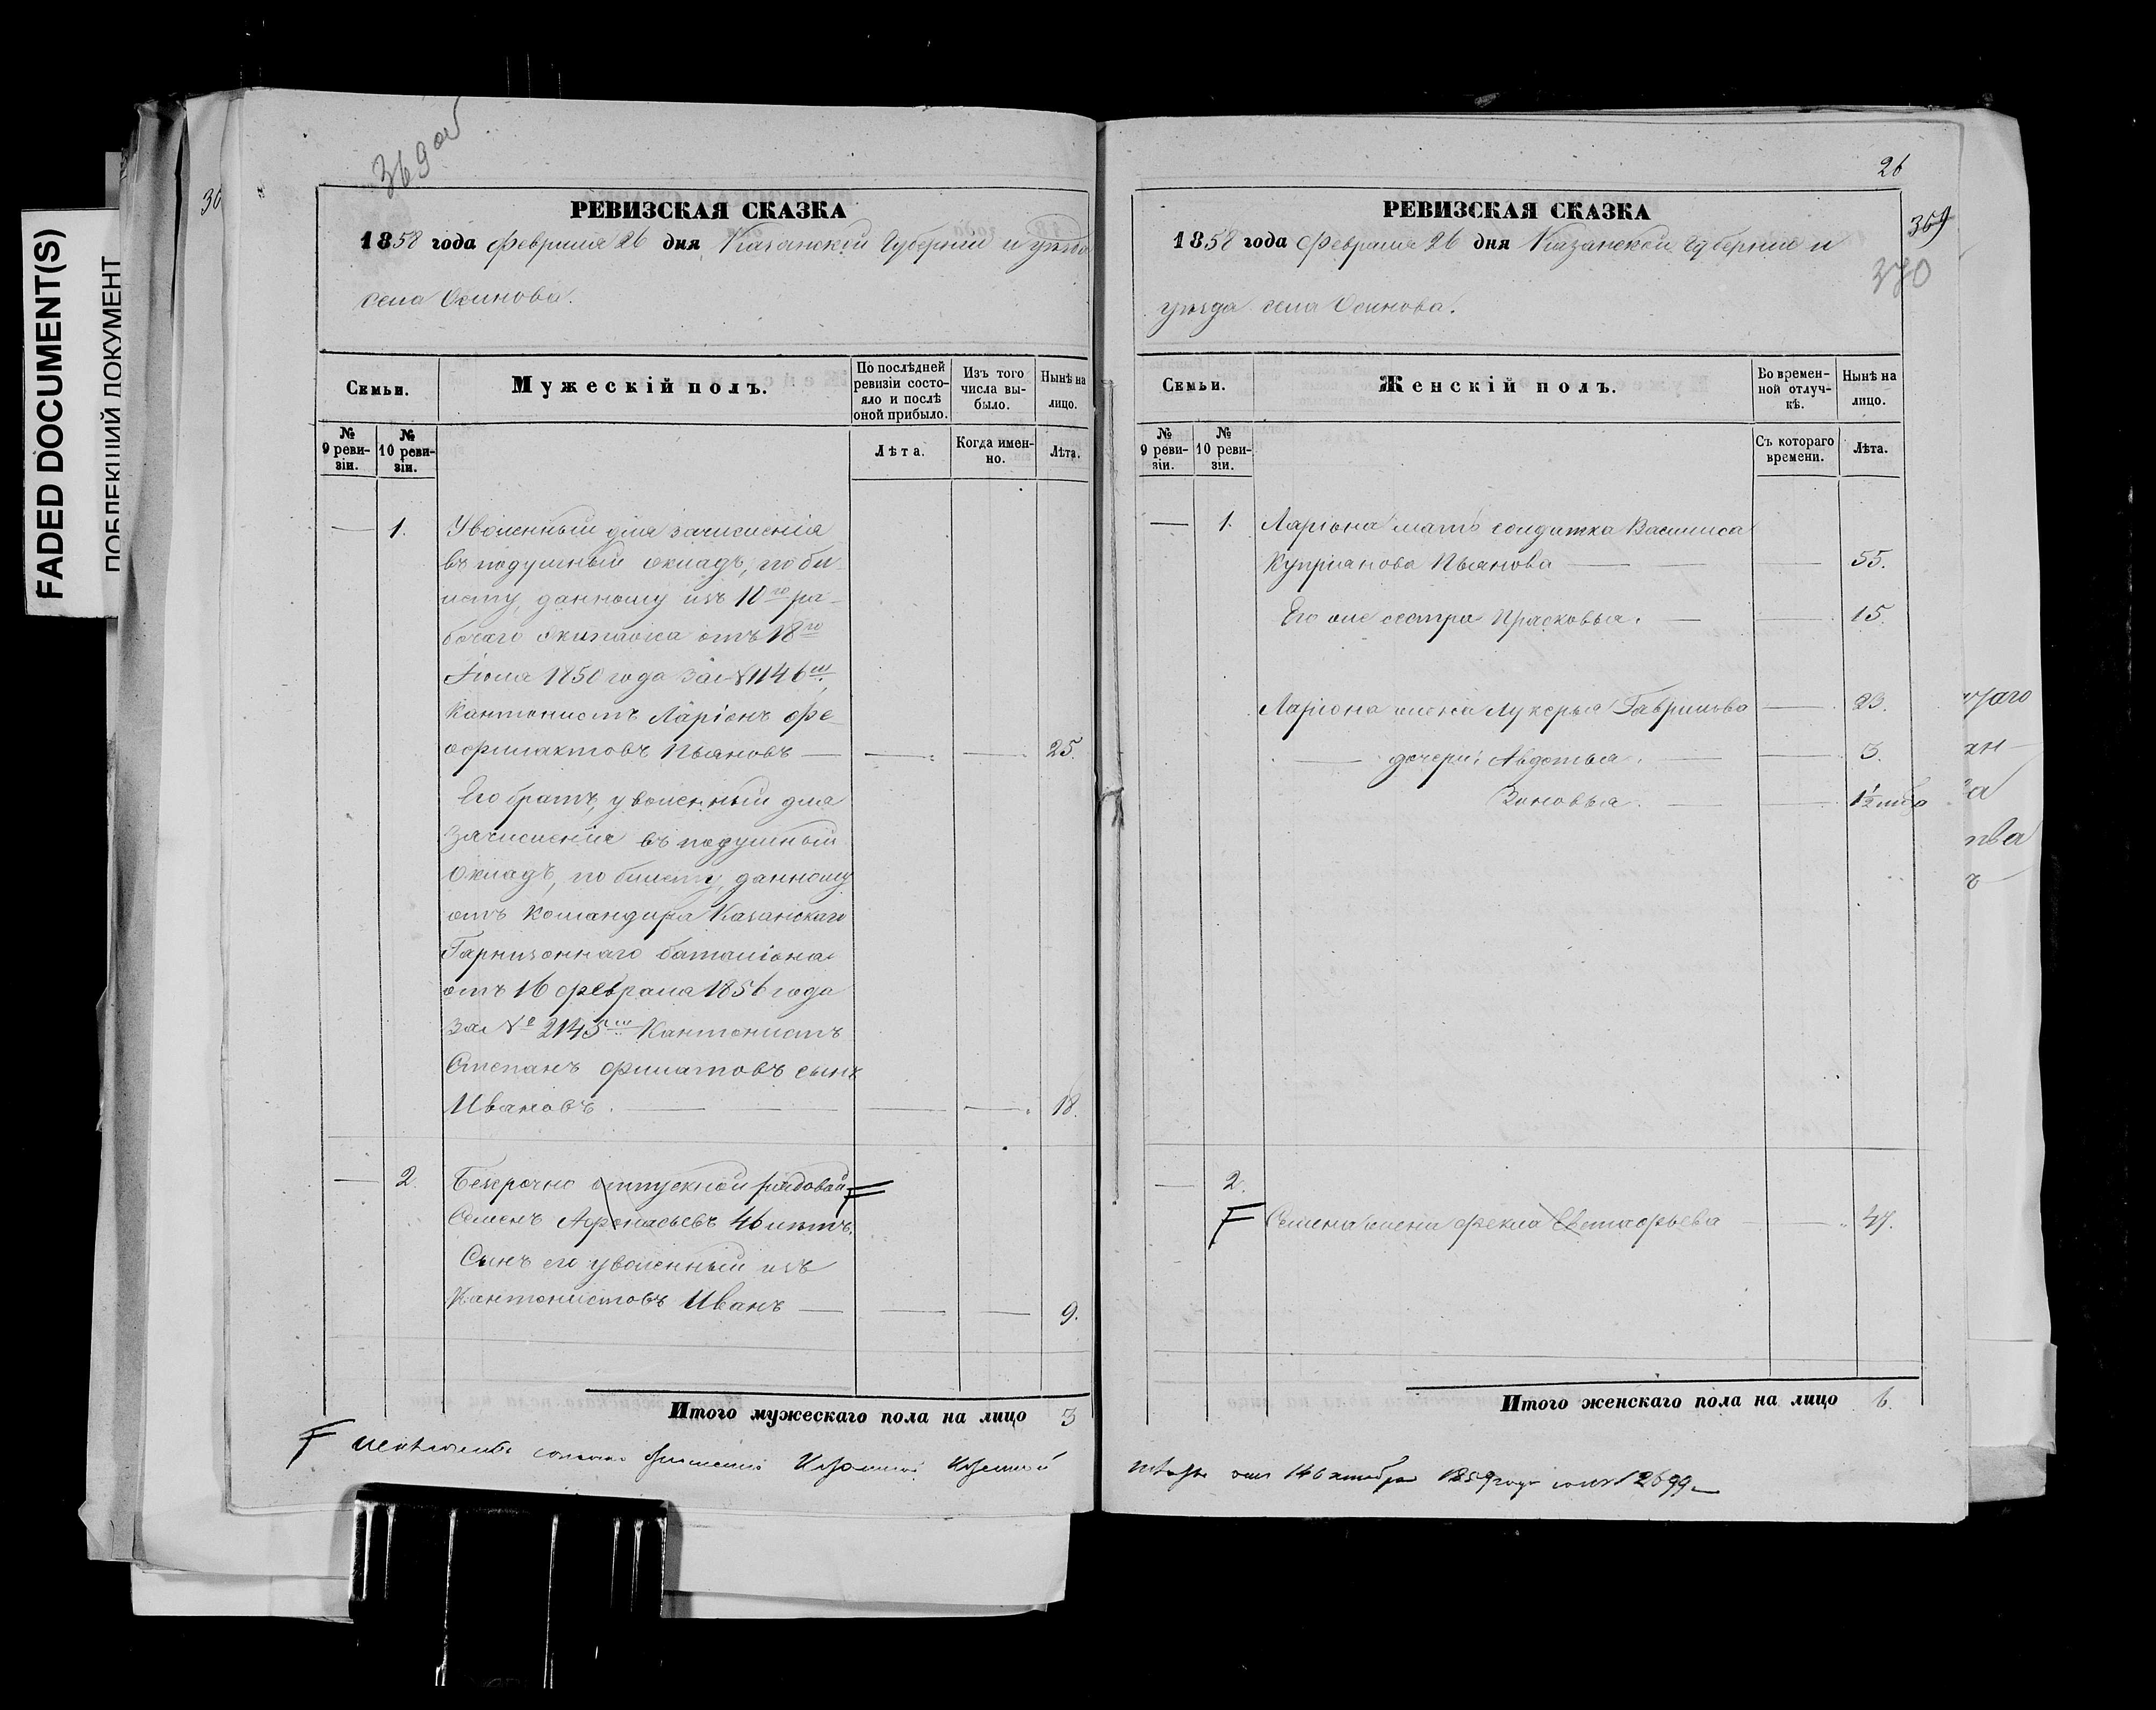 FADED DOCUMENT(S)
ПОБЛЕКШИЙ ДОКУМЕНТ
369об
РЕВИЗСКАЯ СКАЗКА
1858 года Февраля 26 дня Казанской Губерніи и уѣзда
села Осинова.
Семьи.
Мужескій полъ.
По послѣдней ревизіи состояло и послѣ оной прибыло.
Изъ того числа выбыло.
Нынѣ на лицо.
№ 9 ревизіи.
№ 10 ревизіи.
Лѣта.
Когда именно.
Лѣта.
— 1. Уволенный для зачисленія
въ подушный окладъ, по би
лету, данному изъ 10го ра-
бочаго экипажа отъ 18го
Іюля 1850 года за № 1146мъ,
Кантонистъ Ларіонъ Фе
офилактовъ Пьяновъ — — — 25.
Его братъ, уволенный для
зачисленія въ подушный
окладъ, по билету, данному
отъ Командира Казанскаго
Гарнизоннаго баталіона
отъ 16 февраля 1856 года
за № 2145мъ Кантонистъ
Степанъ Филатовъ сынъ
Ивановъ. — — — 18.
— 2. Безсрочно отпускной рядовой
Семенъ Афонасьевъ 46 лѣтъ.
Сынъ его уволенный изъ
Кантонистовъ Иванъ — — — 9.
Итого мужескаго пола на лицо 3
26
369
370
РЕВИЗСКАЯ СКАЗКА
1858 года Февраля 26 дня Казанской Губерніи и
уѣзда села Осинова.
Семьи.
Женскій полъ.
Во временной отлучкѣ.
Нынѣ на лицо.
№ 9 ревизіи.
№ 10 ревизіи.
Съ котораго времени.
Лѣта.
— 1. Ларіона мать солдатка Василиса
Купріанова Пьянова — — 55.
Его же сестра Прасковья. — — 15.
Ларіона жена Лукерья Гаврилова — 23.
— дочери: Авдотья. — — 3.
Зиновья. — — 1½ года
— 2.
Семена жена Фекла Евстафьева — 47.
Итого женскаго пола на лицо 6.
палаты отъ 14 октября 1859 года за № 12699